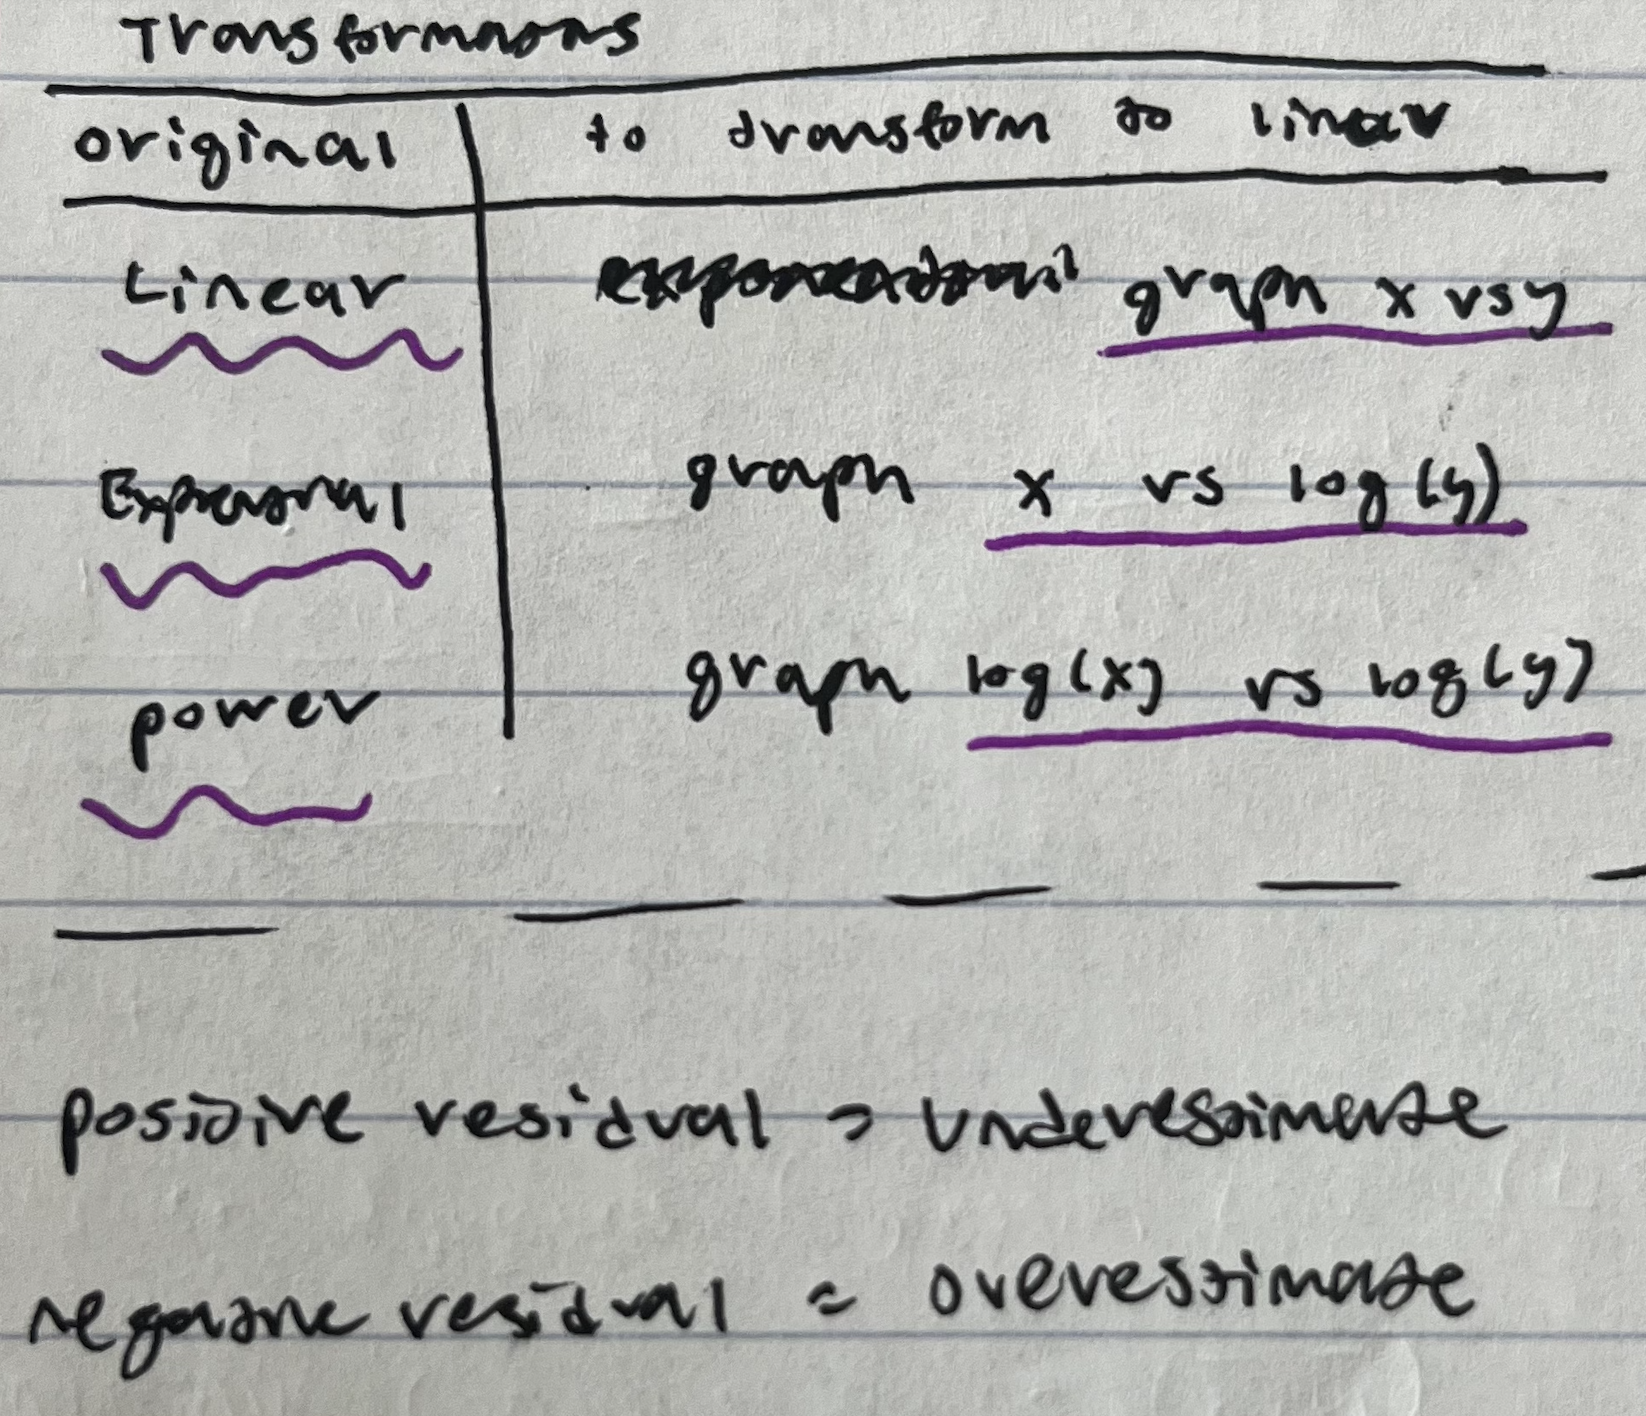 Transformations
original to transform to linear
Linear graph x vs y
Exponential graph x vs log(y)
power graph log(x) vs log(y)
positive residual = underestimate
negative residual = overestimate